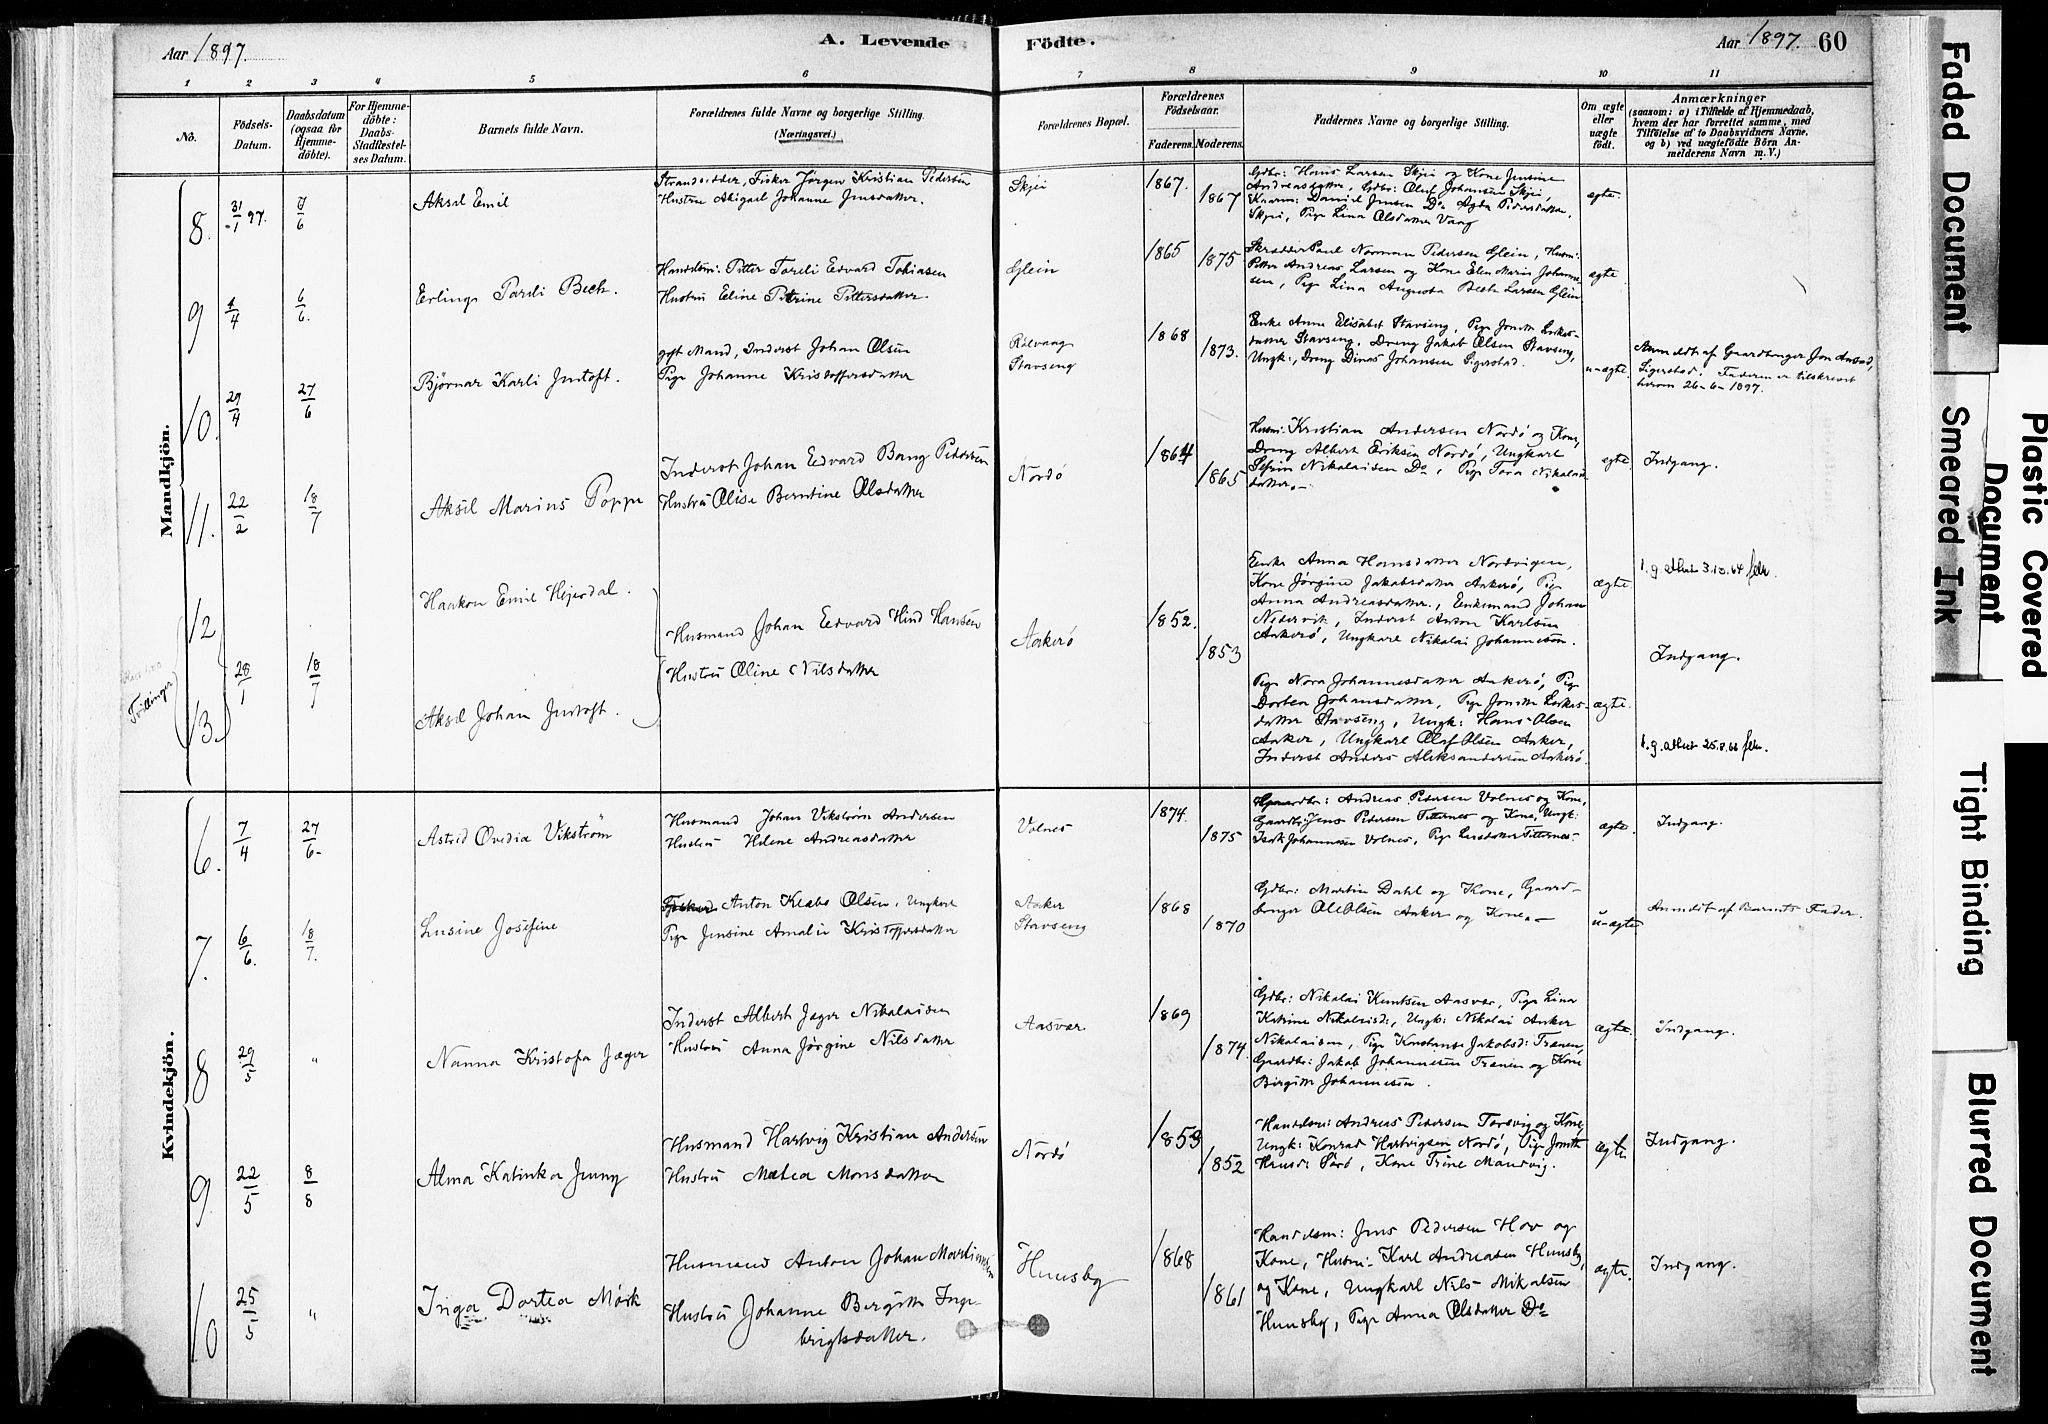 Aar 1897.
A. Levende
Födte.
Aar 1897. 60
1 2 3 4 5 6 7 8 9 10 11
No.
Födsels-Datum.
Daabsdatum (ogsaa for Hjemmedöbte).
For Hjemmedöbte: Daabs-Stadfæstelses Datum.
Barnets fulde Navn.
Forældrenes fulde Navne og borgerlige Stilling.
(Næringsvei.)
Forældrenes Bopæl.
Forældrenes Födselsaar.
Faderens. Moderens.
Faddernes Navne og borgerlige Stilling.
Om ægte eller uægte født.
Anmærkninger
(saasom: a) i Tilfælde af Hjemmedaab,
hvem der har forrettet samme, med
Tilföielse af to Daabsvidners Navne,
og b) ved uægtefödte Börn Anmelderens Navn m. V.)
Mandkjön.
8. 31/1 97. Aksel Emil
Strandsidder, Fisker Jörgen Kristian Pedersen
Hustru Abigael Johanne Jensdatter.
Skjei 1867. 1867
Gdbr: Hans Larsen Skjei og Kone Jensine
Andreasdatter, Gdbr: Oluf Johansen Skjei,
Daniel Jensen Do Agda Pedersdatter
Skjei, Pige Lina Olsdatter Vaag
ægte.
9 4/4 6/6. Erling Tordi Beck.
Handelsm: Petter Toreli Edvard Tobiasen
Hustru Eline Petrine Pettersdatter.
Glein 1865 1875
Skrædder Paul Norman Pedersen Glein, Husm:
Petter Andreas Larsen og Kone Elen Marie Johannesen,
Pige Lina Augusta Beck Larsen Glein
ægte
10. 29/4 27/6 Björnar Karli Justoft.
gift Mand, Inderst Johan Olsen
Pige Johanne Kristoffersdatter
Rölvaag
Stavseng
1868 1873.
Enke Anne Elisabet Stavseng, Pige
Stavseng, Dreng Jakob Olsen Stavseng,
Ungk:, Dreng Dinas Johansen Sigerstad.
u-ægte
Anmeldt af Gaardbruger Jon
Sigerstad. Faderen er tilskrevet
herom 26-6-1897.
11. 22/2 18/7 Aksel Marius Poppe
Inderst Johan Edvard Bang Pedersen
Hustru Olise Berntine Olsdatter
Nordö 1864 1865
Husm: Kristian Andersen Nordö og Kone,
Dreng Albert Eriksen Nordö, Ungkarl
Sefrin Nikolaisen Do, Pige Tora Nikolaidatter.
ægte Indgang.
Tvillinger
12 Haakon Emil Hjerdal.
28/1 18/7
13. Aksel Johan Justoft.
Husmand Johan Edvard Hind Hansen
Hustru Oline Nilsdatter
Aakerö 1852. 1853
Enke Anna Hansdatter Nordvigen,
Kone Jörgine Jakobsdatter Aakerö, Pige
Anna Andreasdatter., Enkemand Johan
Nedervik, Inderst Anton Karlsen
Aakerö, Ungkarl Nikolai Johannesen.
ægte
1.g. attest 3.10.64
Indgang.
Pige Nora Johannesdatter Aakerö, Pige
Dortea Johansdatter, Pige
Stavseng, Ungk: Hans Olsen
Aaker, Ungkarl Olaf Olsen Aaker,
Inderst Anders Aleksandersen Aakerö.
ægte.
1.g. attest 25.8.66
Kvindekjön.
6. 7/4 27/6. Astrid Ovedia Vikström
Husmand Johan Vikström Andersen
Hustru Helene Andreasdatter
Volnes 1874. 1875
Gaardbr: Andreas Pedersen Volnes og Kone,
Gaardbr: Jens Pedersen Titternes og Kone, Ungk:
Isak Johannesen Volnes, Pige Larsdatter Titternes.
ægte. Indgang.
7. 6/6. 18/7. Lusine Josefine
Anton Klæbo Olsen, Ungkarl
Pige Jensine Amalie Kristoffersdatter
Aaker
Stavseng
1868 1870
Gdbr: Martin Dahl og Kone, Gaardbruger
Ole Olsen Aaker og Kone.
u-ægte Anmeldt af Barnets Fader.
8 29/5 " Nanna Kristofa Jæger
Inderst Albert Jæger Nikolaisen
Hustru Anna Jörgine Nilsdatter
Aasvær 1869 1874.
Gdbr: Nikolai Knutsen Aasvær, Pige Lina
Katrine Nikolaisd:, Ungk: Nikolai Anker
Nikolaisen, Pige Konstanse Jakobsd: Trænen,
Gaardbr: Jakob Johannesen Trænen og Kone
Birgitte Johannesen.
ægte. Indgang.
9 22/5 8/8 Alma Katinka Jenny
Husmand Hartvig Kristian Andersen
Hustru Matea Monsdatter
Nordö 1853 1852
Handelsm: Andreas Pedersen Torsvig og Kone,
Ungk: Konrad Hartvigsen Nordö, Pige
Kone Trine Mandvig.
ægte Indgang.
10 25/5 " Inga Dortea Mörk
Husmand Anton Johan Martinusen
Hustru Johanne Bergitte Ingebrigtsdatter.
Husby 1868 1861
Handelsm: Jens Pedersen Hov og
Kone, Husm: Karl Andreasen Husby,
og Kone, Ungkarl Nils Mikalsen
Husby, Pige Anna Olsdatter Do
ægte. Indgang.
Faded Document
Smeared Ink
Plastic Covered Document
Tight Binding
Blurred Document